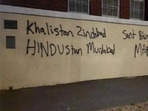 Khalistan Zindabad
HINDUstan Murdabad
Sant